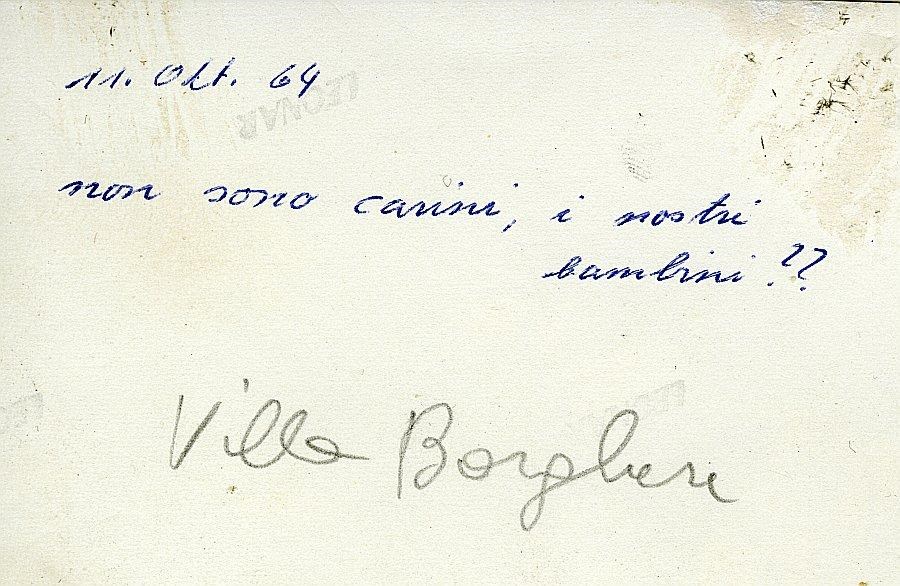 11. Okt. 64
LEONAR
non sono carini, i nostri
bambini ??
Villa Borghese